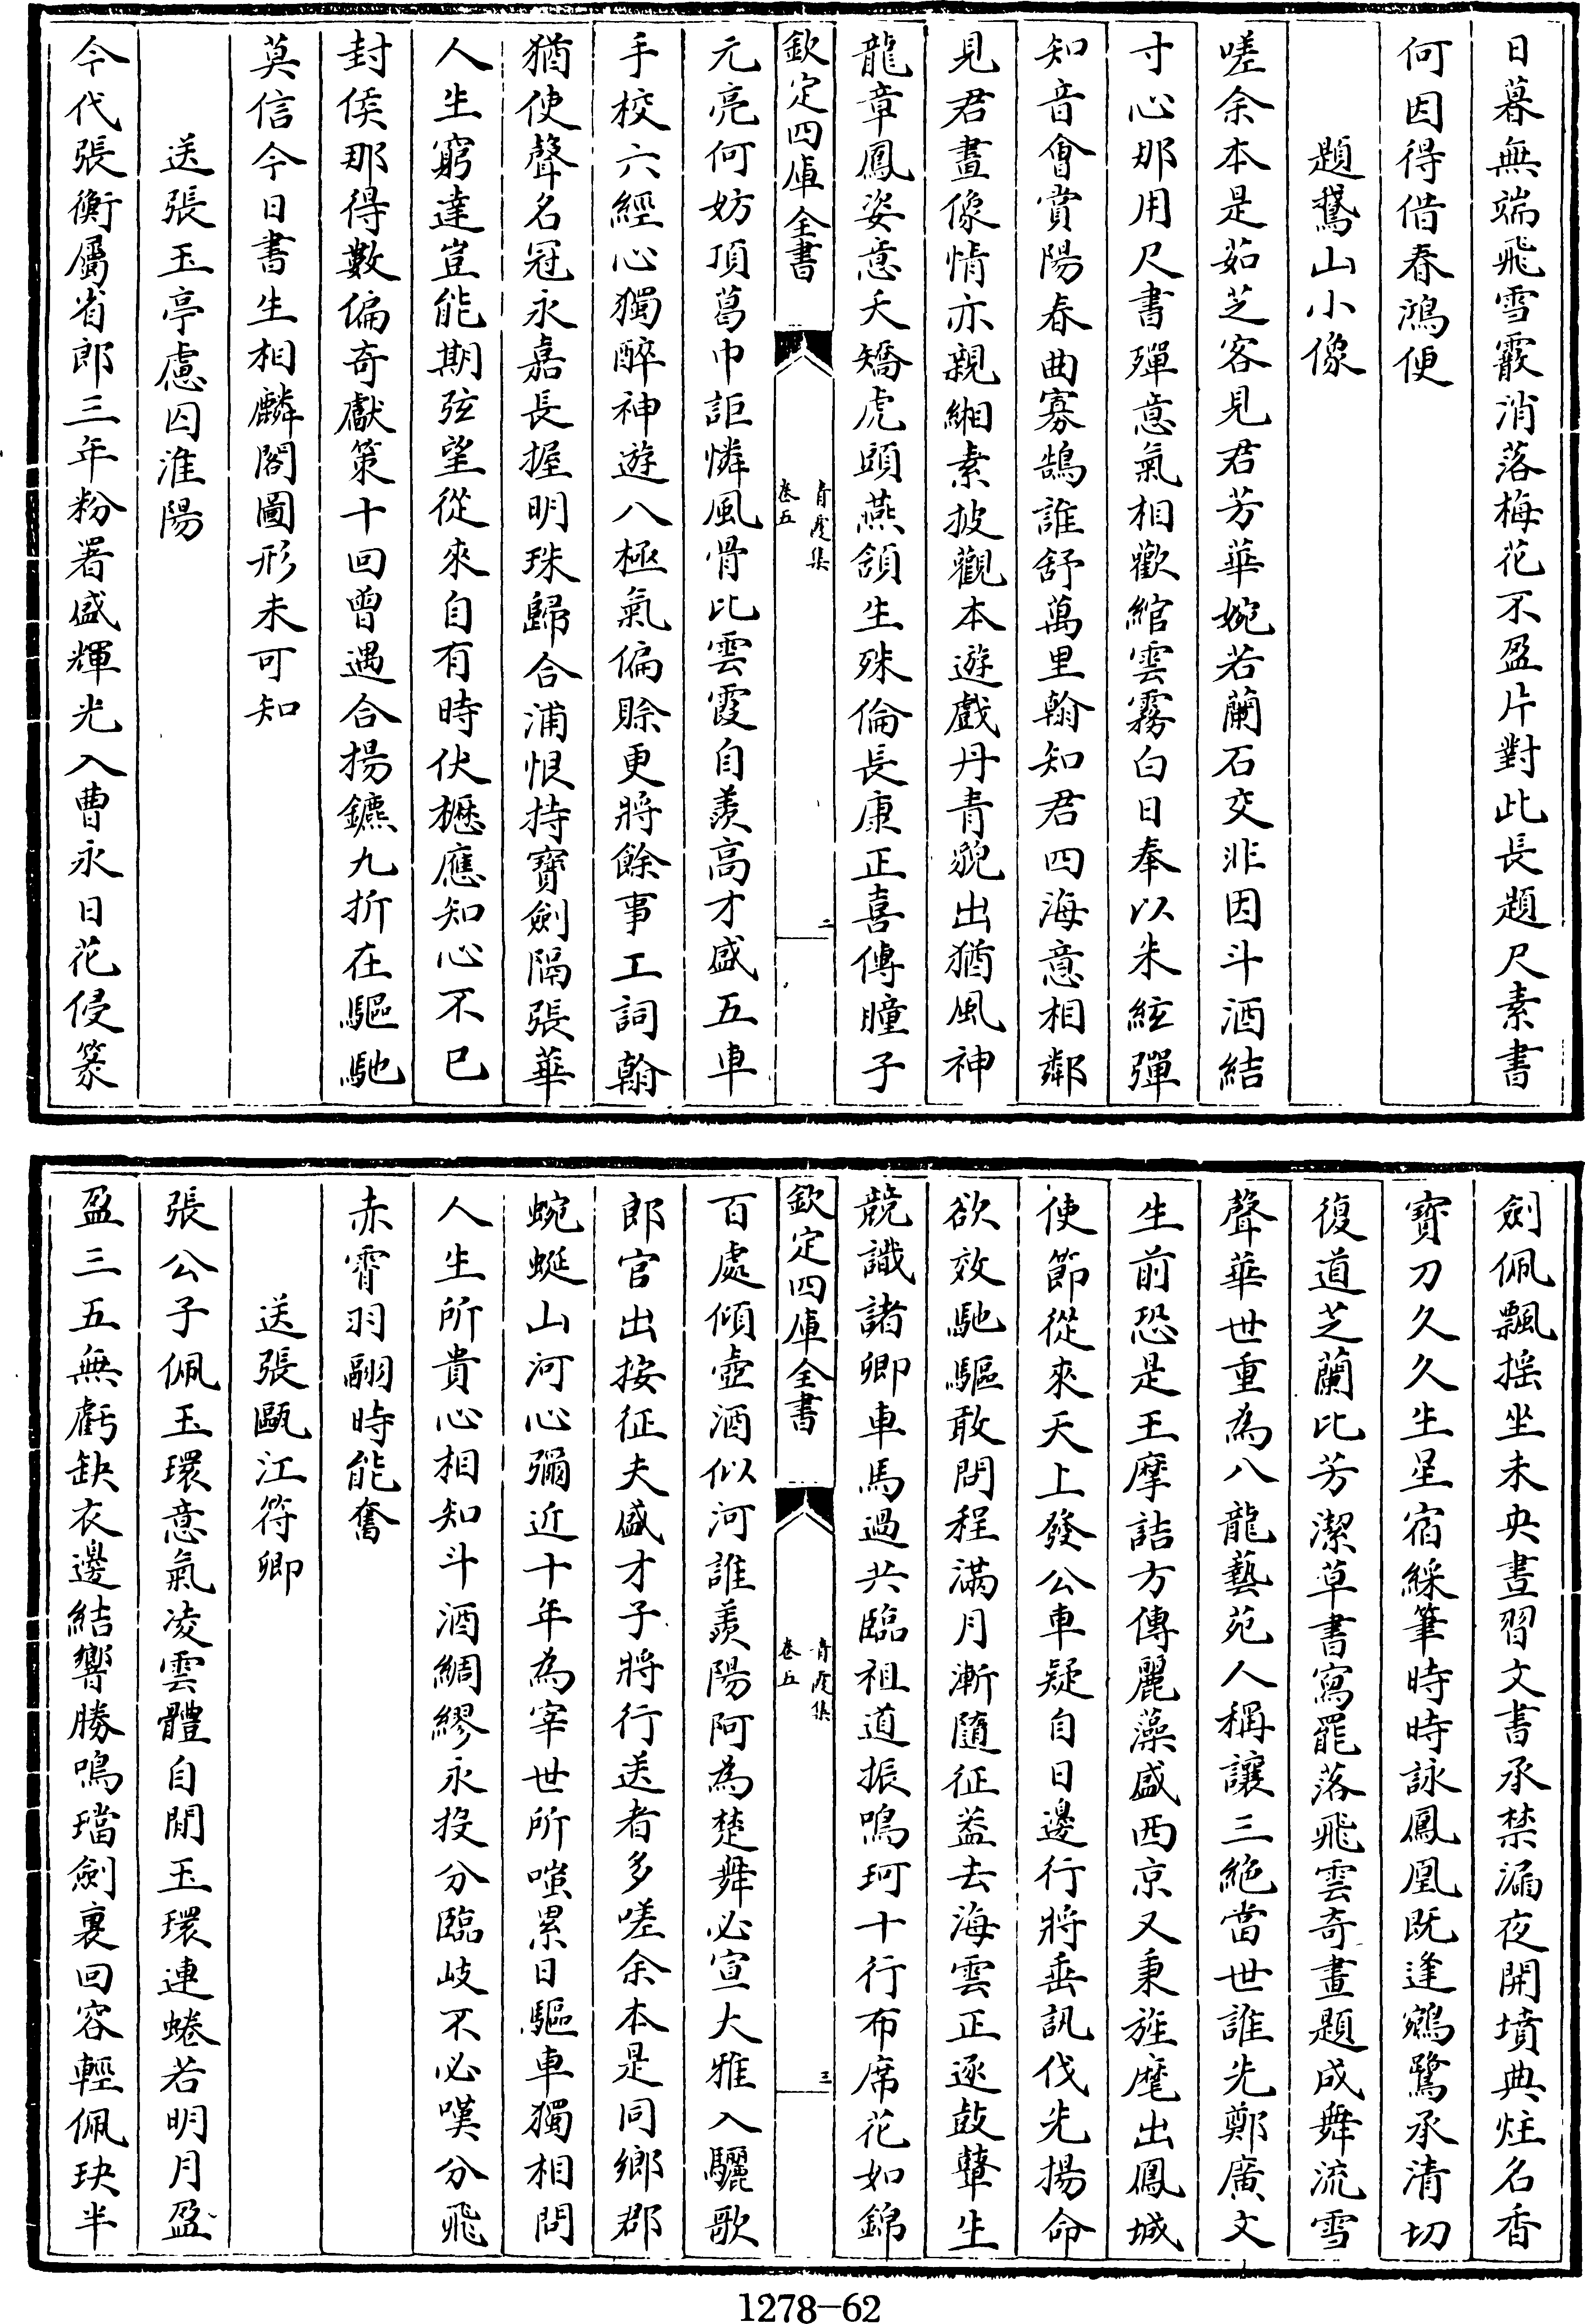 日暮無端飛雪霰消落梅花不盈片對此長題尺素書
何因得借春鴻便
題鵞山小像
嗟余本是茹芝客見君芳華婉若蘭石交非因斗酒結
寸心那用尺書殫意氣相歡綰雲霧白日奉以朱絃彈
知音會賞陽春曲寡鵠誰舒萬里翰知君四海意相鄰
見君畫像情亦親緗素披觀本遊戲丹青貌出猶風神
龍章鳳姿意夭矯虎頭燕頷生殊倫長康正喜傳瞳子
欽定四庫全書
青霞集
卷五
二
元亮何妨頂葛巾詎憐風骨比雲霞自羨高才盛五車
手校六經心獨醉神遊八極氣偏賒更將餘事工詞翰
猶使聲名冠永嘉長握明珠歸合浦恨持寶劍隔張華
人生窮達豈能期弦望從來自有時伏櫪應知心不已
封侯那得數偏奇獻策十回曾遇合揚鑣九折在驅馳
莫信今日書生相麟閣圖形未可知
送張玉亭慮囚淮陽
今代張衡屬省郎三年粉署盛輝光入曹永日花侵篆
劍佩飄搖坐未央晝習文書承禁漏夜開墳典炷名香
寶刀久久生星宿綵筆時時詠鳳凰既逢鵷鷺承清切
復道芝蘭比芳潔草書寫罷落飛雲奇畫題成舞流雪
聲華世重為八龍藝苑人稱讓三絶當世誰先鄭廣文
生前恐是王摩詰方傳麗藻盛西京又秉旌麾出鳳城
使節從來天上發公車疑自日邊行將垂訊伐先揚命
欲效馳驅敢問程滿月漸隨征葢去海雲正逐鼓鼙生
競識諸卿車馬過共臨祖道振鳴珂十行布席花如錦
欽定四庫全書
青霞集
卷五
三
百處傾壺酒似河誰羨陽阿為楚舞必宣大雅入驪歌
郎官出按征夫盛才子將行送者多嗟余本是同鄉郡
蜿蜒山河心彌近十年為宰世所嗤累日驅車獨相問
人生所貴心相知斗酒綢繆永投分臨岐不必嘆分飛
赤霄羽翮時能奮
送張甌江符卿
張公子佩玉環意氣凌雲體自閒玉環連蜷若明月盈
盈三五無虧缺衣邊結響勝鳴璫劍裏回容輕佩玦半
1278-62